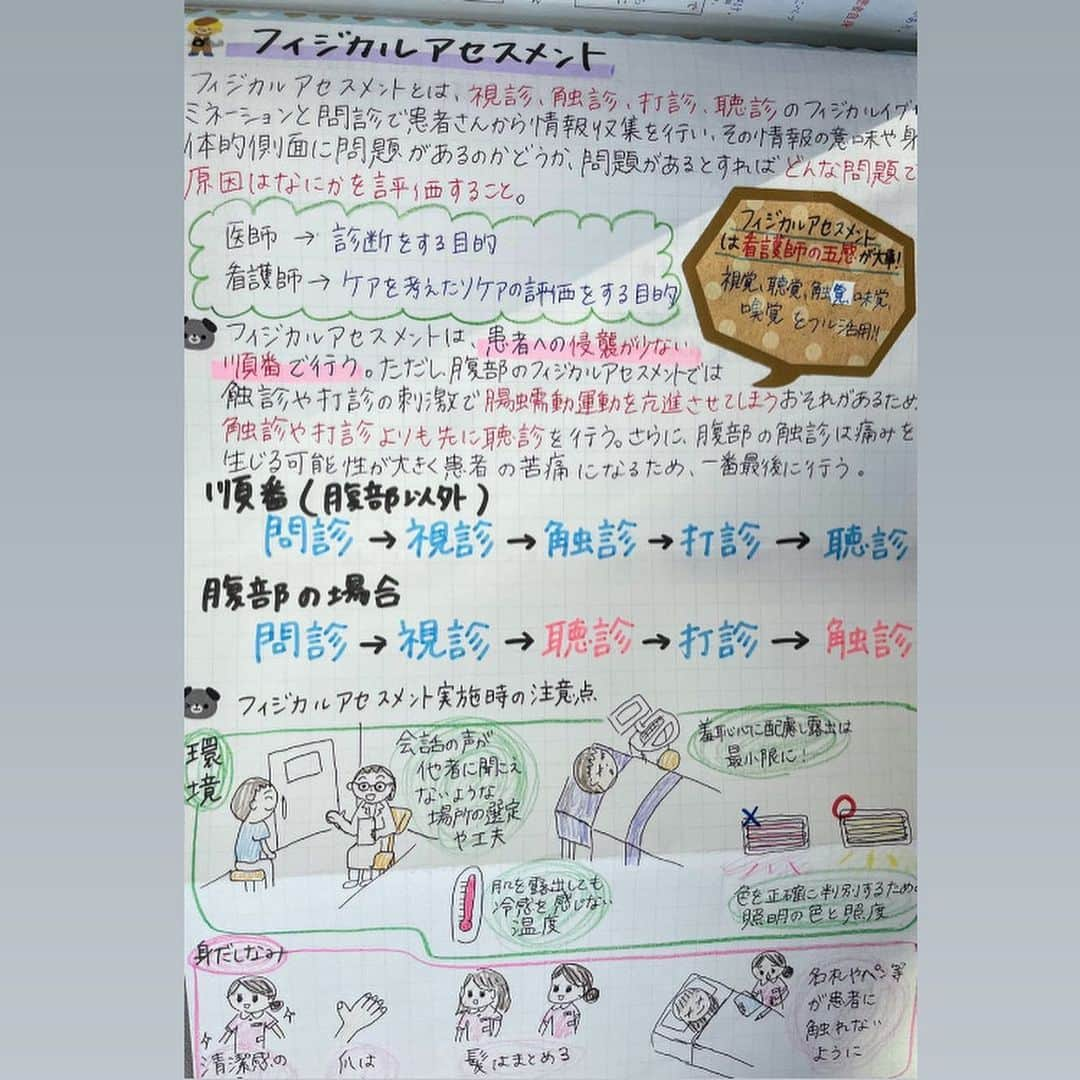 フィジカルアセスメント
フィジカルアセスメントとは、視診、触診、打診、聴診のフィジカルイグザ
ミネーションと問診で患者さんから情報収集を行い、その情報の意味や身
体的側面に問題があるのかどうか、問題があるとすればどんな問題で
原因はなにかを評価すること。
医師 → 診断をする目的
看護師 → ケアを考えたりケアの評価をする目的
フィジカルアセスメント
は看護師の五感が大事!
視覚、聴覚、触覚、味覚、
嗅覚をフル活用!!
フィジカルアセスメントは、患者への侵襲が少ない
順番で行う。ただし、腹部のフィジカルアセスメントでは
触診や打診の刺激で腸蠕動運動を亢進させてしまうおそれがあるため
触診や打診よりも先に聴診を行う。さらに、腹部の触診は痛みを
生じる可能性が大きく患者の苦痛になるため、一番最後に行う。
順番(腹部以外)
問診→視診→触診→打診→聴診
腹部の場合
問診→視診→聴診→打診→触診
フィジカルアセスメント実施時の注意点
環境
会話の声が
他者に聞こえ
ないような
場所の選定
や工夫
羞恥心に配慮し露出は
最小限に!
肌を露出しても
冷感を感じない
温度
色を正確に判別するための
照明の色と照度
身だしなみ
清潔感の
爪は
髪はまとめる
名札やペン等
が患者に
触れない
ように